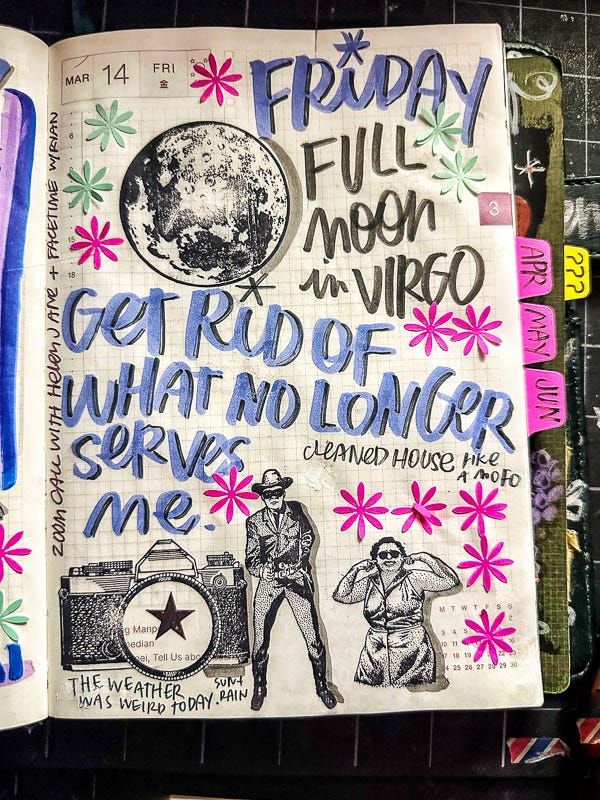 MAR 14 FRI
金
FRIDAY
FULL
MOON
in VIRGO
3
6
18
APR
???
MAY
JUN
GET RID OF
WHAT NO LONGER
SERVES
me.
CLEANED HOUSE LIKE
A MOFO
ZOOM CALL WITH HELEN JANE + FACETIME W/RIAN
g Manp
edian
ei, Tell Us abo
M T W T F S S
THE WEATHER
WAS WEIRD TODAY.
SUN +
RAIN